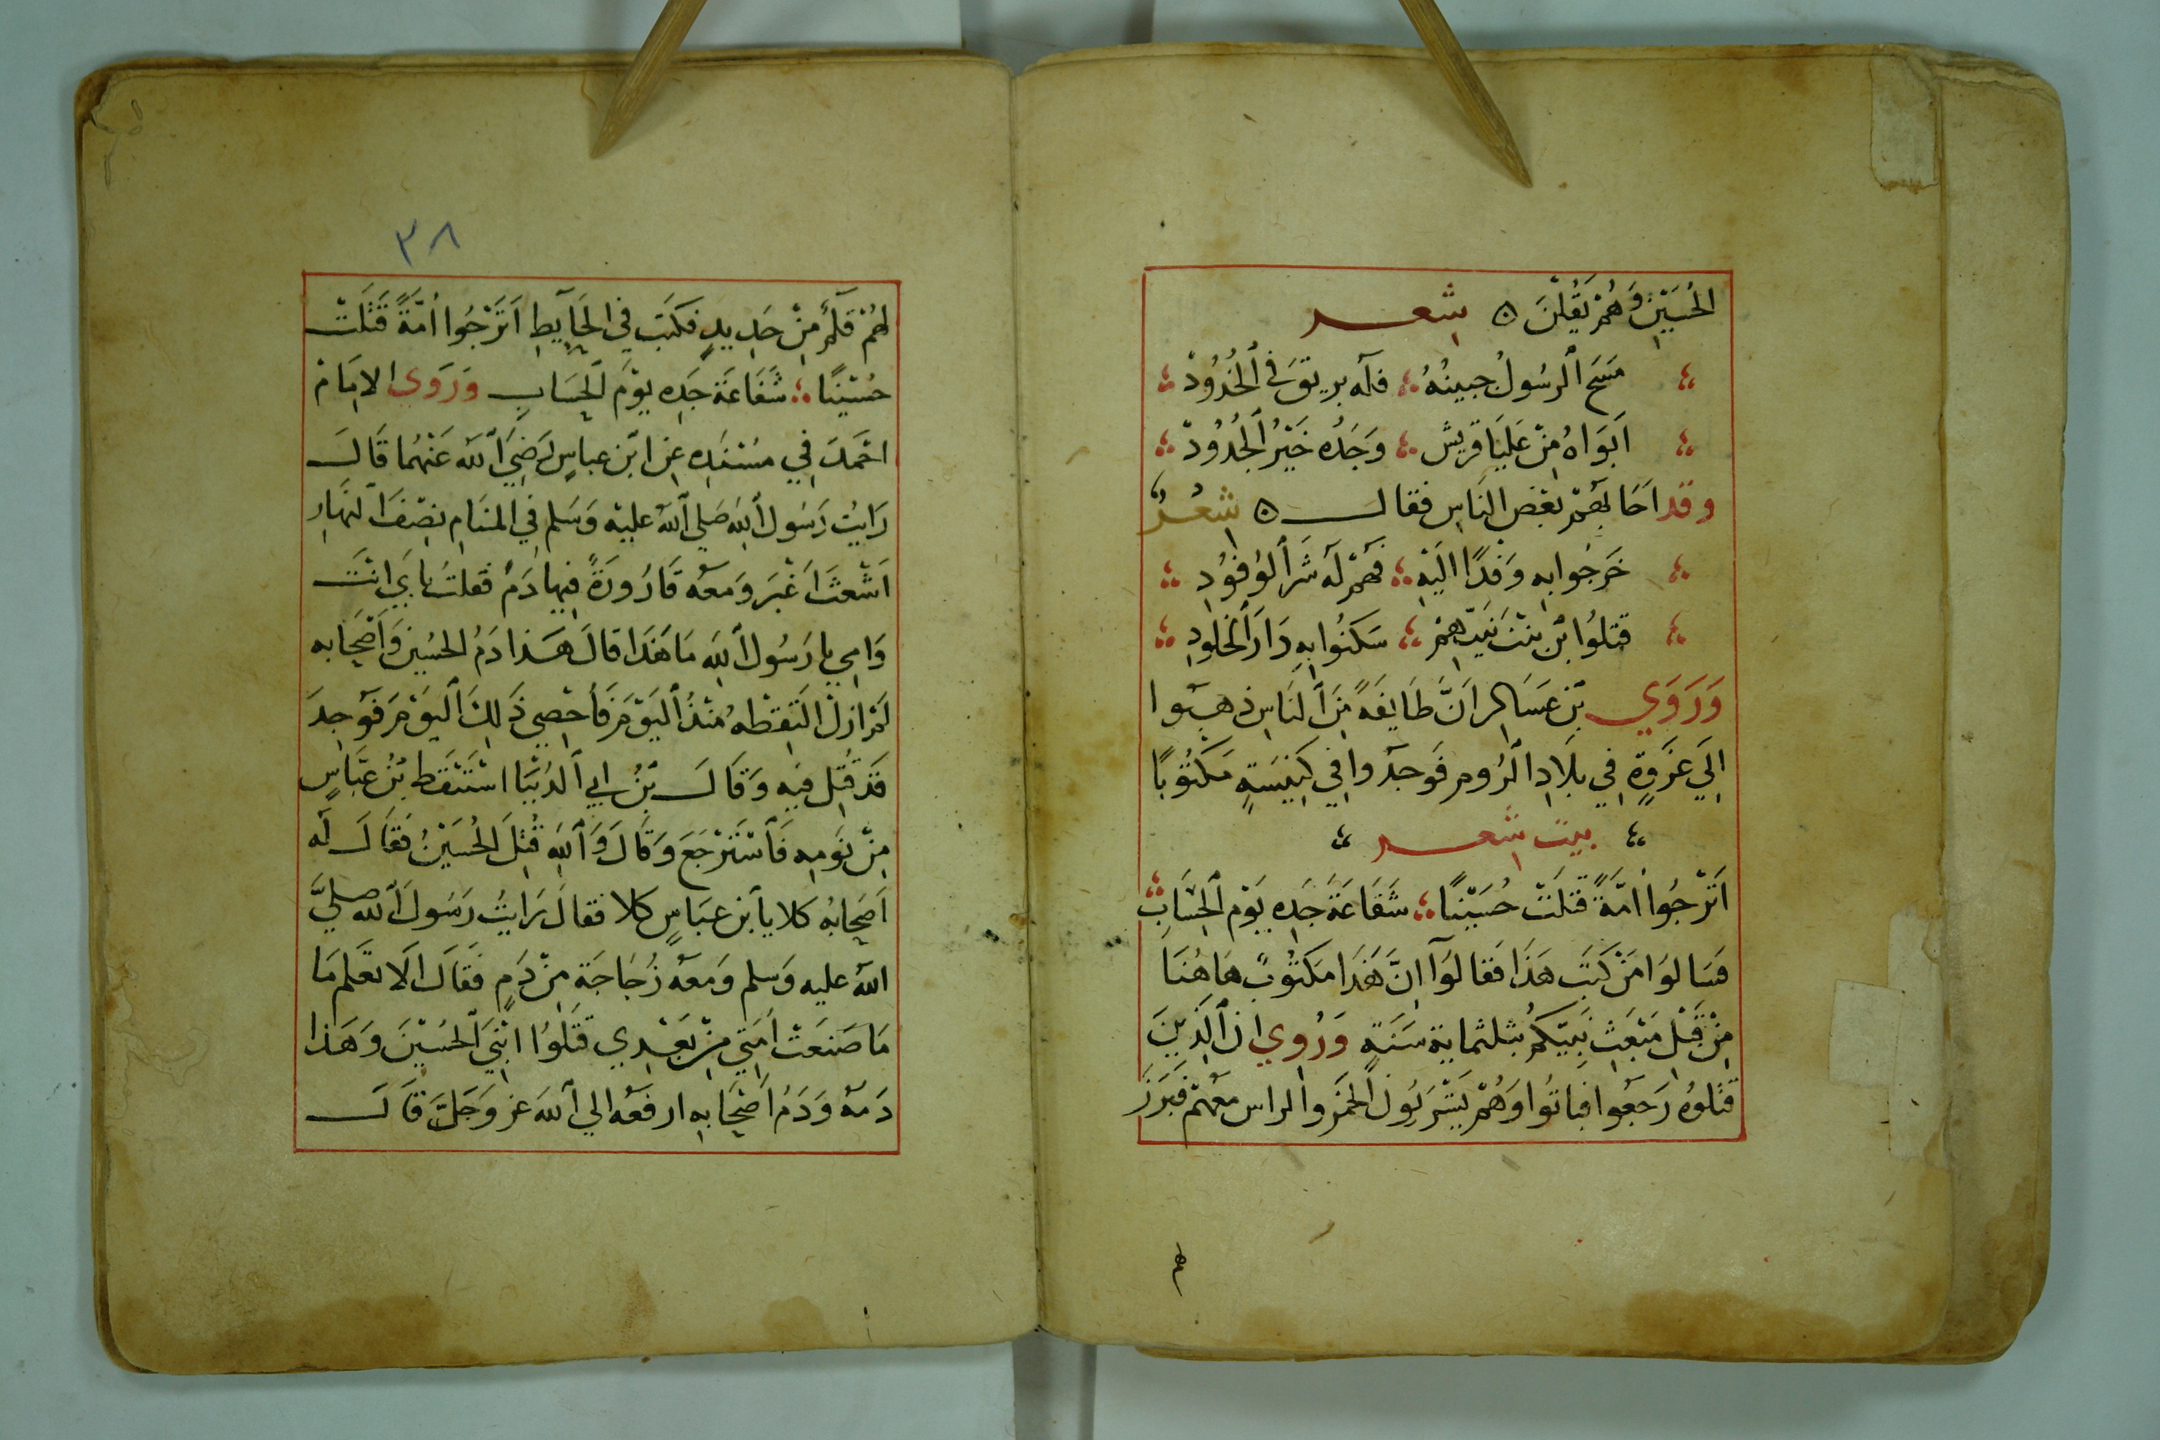 الحُسَيْنِ وَهُمْ يَقُلْنَ ۞ شِعـر
مَسَحَ ٱلرسُولُ جبينُهُ فله بريقَ في ٱلخُدُودْ
اَبَوَاهُ مِنْ عَليَا قريش وَجَدُه خَيْرُ ٱلجُدُودْ
وقد اَجَابهم بَعْضِ النَاسِ فقال ۞ شِعْـرٌ
خَرجُوابه وَفدًا اليَهِ فَهمْ له شَرٱلوُفوُدِ
قتلوُا بْن بنت نَبيّهمْ سَكنُوا بِهِ دَارَ ٱلخلودِ
وَرَوَي بْن عَسَاكِر اَنَّ طَايفَةً مِنَ ٱلنَاسِ ذهبُوا
اِلَي غَزوةٍ فِي بلَادِ ٱلرُومِ فوَجدَوا فِي كَنِيسَةٍ مَكتُوبًا
بيت شعـر
اَتَرْجُوا اُمَّةً قَتَلَتْ حُسَيْنًا شَفَاعَةَ جَدِه يَوْم ٱلحِسَابِ
فسَالوَا مَنْ كَتَبَ هَذَا فَقَالوَآ اِنَّ هَذَا مَكتُوبٌ هَاهُنَا
مِنْ قَبْلِ مَبْعَثِ نَبِيّكُمْ بثلثماية سَنَةٍ وَرُوِي ان ٱلذِينَ
قتلوُه رَجَعَوا فباتُوا وَهُمْ يَشْرَبُونَ الخمَر والراس معَهمْ فبَرَزَ
لهم
٣٨
لهُمْ قلَمٌ مِنْ حَدِيدٍ فكتبَ فِي الحَآيِطِ اَتَرْجُوا اُمَّةً قَتَلَتْ
حُسَيْنًا شَفَاعَة جَدِه يوْمَ ٱلحِسَابِ وَرَوَي الاِمَامْ
احْمَدَ فِي مسْندِه عِن ابْن عباسٍ رَضِيَ ٱلله عَنْهُما قَالَ
رَايتُ رَسُول ٱلله صَلي ٱلله عليهْ وَسَلم فِي المنَامِ بِنصْفَ ٱلنهَارِ
اَشْعثَ اَغْبَرَ وَمَعَه قَارُورَةً فِيهَا دَمٌ فقلتُ بابَي انْتَ
وَامِي يا رَسُول ٱللهِ مَا هَذَا قالَ هَذا دَمُ الحسُين وَاَصْحَابه
لمْ ازلْ التَقِطْهُ منْذُ ٱليَوْمِ فَاُحْصِي ذَلِكَ ٱليَوْمِ فوَجِدَ
قَدْ قُتِل فيهِ وَقَالَ بْنُ ابي ٱلدُنْيَا اسْتَيْقَظ بْنُ عبَّاسٍ
مِنْ نوَمِهِ فَاَسْتَرْجَعَ وَقَالَ وَٱللهِ قُتِلَ الحُسَيْنُ فقَالَ لَه
اَصَحابُه كلا يا اَبن عبَاسٍ كلا فقالَ رَايتُ رَسُولَ ٱلله صليَّ
الله عليه وَسلم وَمَعَه زُجَاجَة مِنْ دَمٍ فقَالَ اَلَا تعَلم مَا
مَا صَنعَتْ اُمَتي مِنْ بَعْدِي قَتَلوُا ابْنِيَ ٱلحُسَيْنَ وَهَذا
دَمهُ وَدَمُ اَصْحَابِه ارفعَه الي ٱللهَ عز وَجَلَّ قَالَ